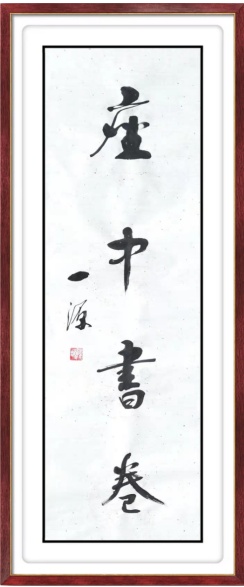 座中書卷
一源